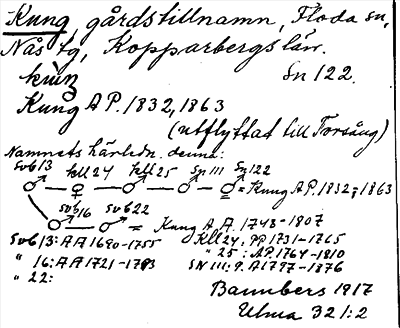 Kung gårdstillnamn, Floda sn,
Nås tg, Kopparbergs län.
kuŋ Sn 122.
Kung A P. 1832, 1863
(utflyttat till Torsång)
Namnets härledn. denna:
Svb13 Kll 24 Kll 25 Sn 111 Sn 122
♂ — ♀ — ♂ — ♂ — ♂ = Kung A P. 1832; 1863
Svb16 Svb22
♂ — ♂ = Kung A A. 1748-1807
Svb13: A A 1690-1755 Kll 24: PP 1731-1765
" 16: A A 1721-1793 " 25: A P. 1764-1810
" 22: SN 111: P. A 1797-1876
1917
Ulma 321:2